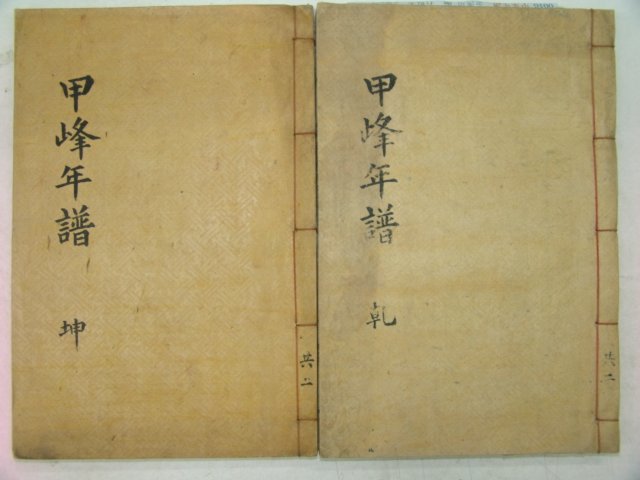 甲峰年譜 乾
共二
甲峰年譜 坤
共二